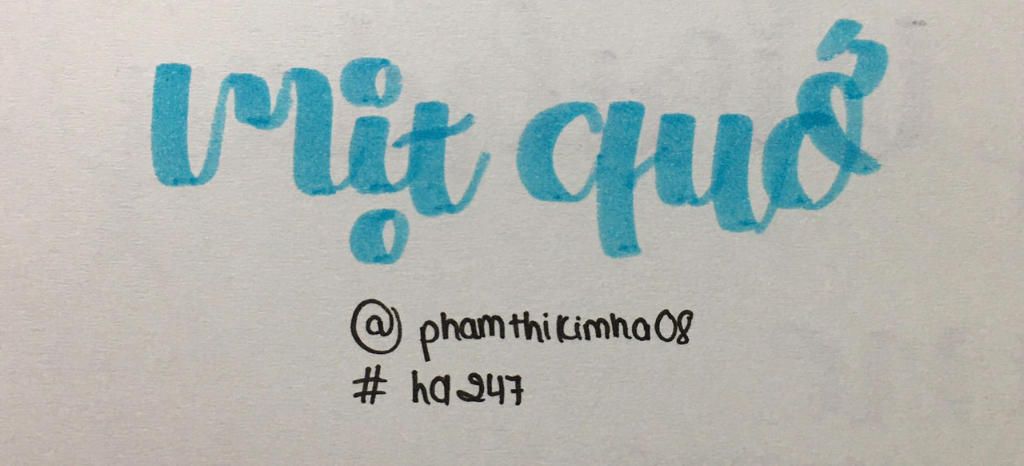 mịt quớ
@phamthikimha08
# ha247